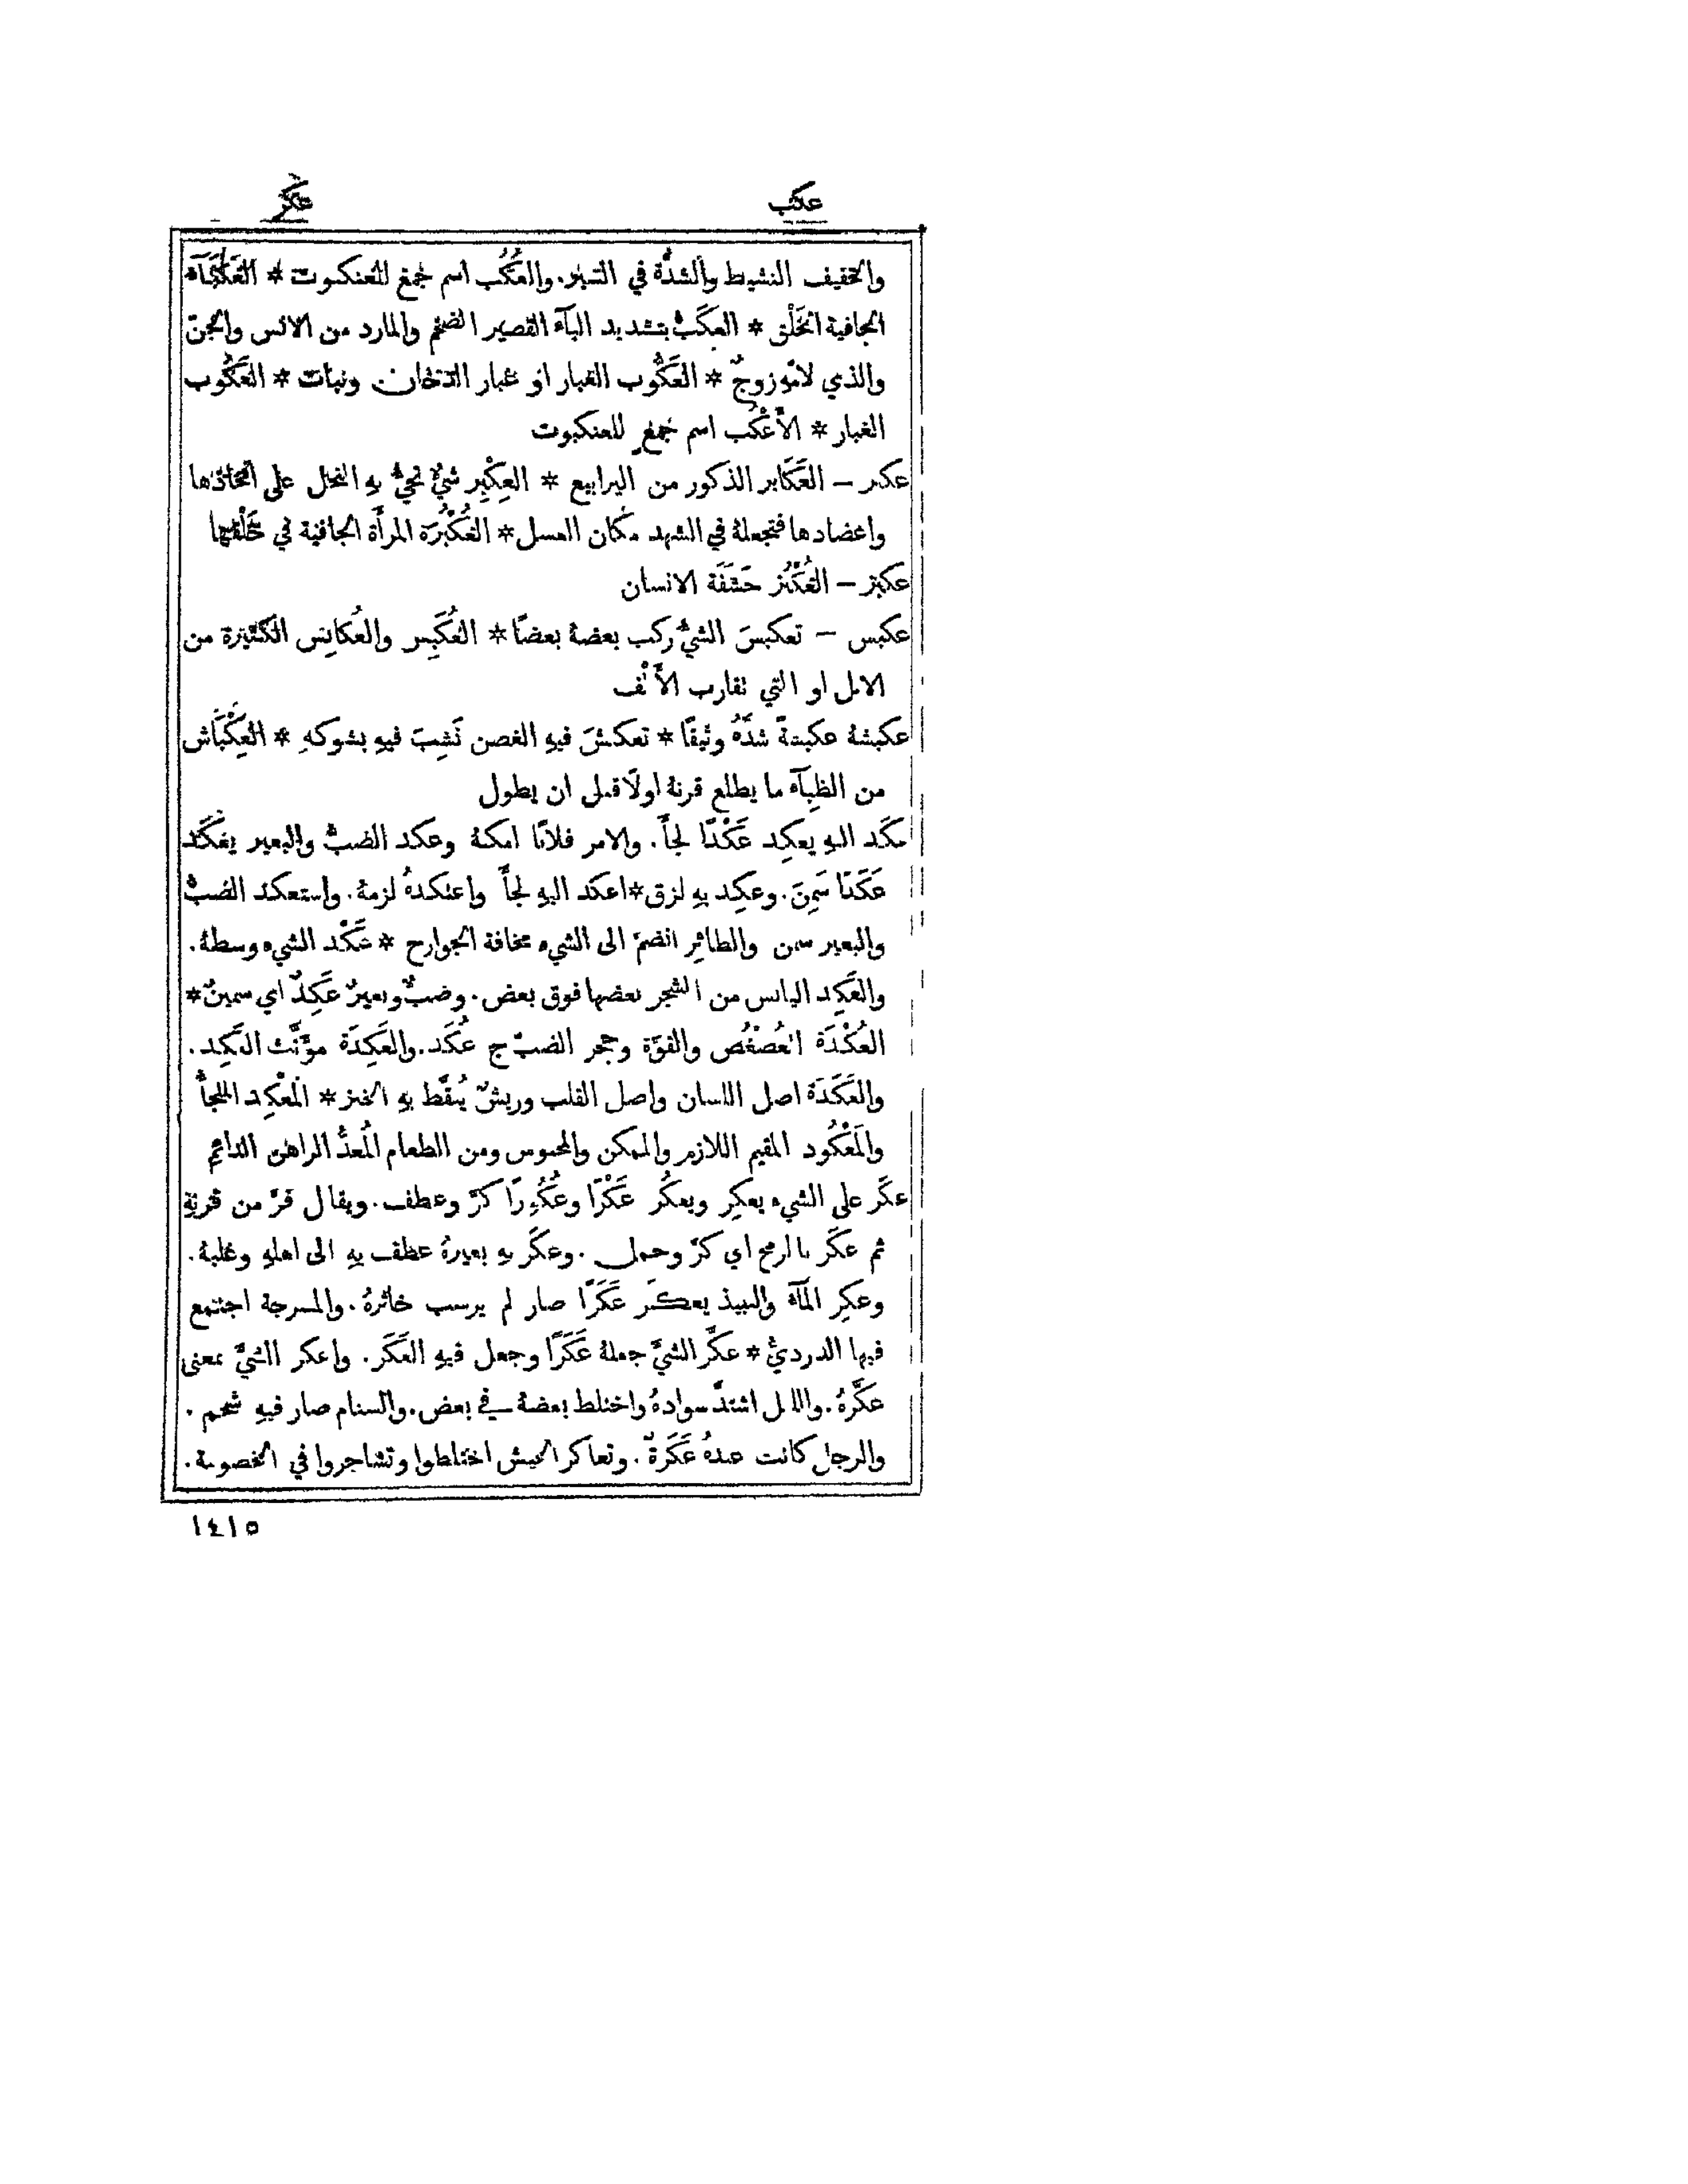 عكب عكر
والخفيف النشيط والشدَّة في السَّير. والعُكُب اسم جمعٍ للعنكبوت * العَكْبَآء
الجافية الخَلْق * العِكَبّ بتشديد البآء القصير الضخم والمارد من الانس والجنّ
والذي لامّهِ زوجٌ * العَكُوب الغبار او غبار الدّخان ونبات * العَكُّوب
الغبار * الأَعْكُب اسم جمعٍ للعنكبوت
عكبر – العَكَابر الذكور من اليرابيع * العِكْبِر شيءٌ تجيءُ بهِ النحل على افخاذها
واعضادها فتجعلهُ في الشهد مكان العسل * العُكْبُرَة المرأَة الجافية في خَلْقها
عكبز – العُكْبُز حَشَفَة الانسان
عكبس – تعكبسَ الشيءُ ركب بعضهُ بعضًا * العُكَبِس والعُكابِس الكثيرة من
الابل او التي تقارب الأَلْف
عكبشهُ عكبشةً شدَّهُ وثيقًا * تعكبشَ فيهِ الغصن نَشِبَ فيهِ بشوكهِ * العِكْبَاش
من الظِبآء ما يطلع قرنهُ اولًا قبل ان يطول
عكَد اليهِ يعكِد عَكْدًا لجأَ. والامر فلانًا امكنهُ وعكد الضبُّ والبعير يعكَد
عَكَدًا سَمِنَ. وعكِد بهِ لزق * اعكد اليهِ لجأَ واعتكدهُ لزمهُ. واستعكد الضبُّ
والبعير سمن والطائِر انضمّ الى الشيء مخافة الجوارح * عَكْد الشيء وسطهُ.
والعَكِد اليابس من الشجر بعضها فوق بعض. وضبٌّ وبعيرٌ عَكِدٌ اي سمينٌ *
العُكْدَة العُصْعُص والقوّة وجحر الضبّ ج عُكَد. والعَكِدَة مؤَنَّث العَكِد.
والعَكَدَة اصل اللسان واصل القلب وريشٌ يُنقَّط بهِ الخبز * المَعْكِد الملجأُ
والمَعْكُود المقيم اللازم والممكن والمحبوس ومن الطعام المُعدُّ الراهن الدائم
عكَر على الشيء يعكِر ويعكُر عَكْرًا وعُكُورًا كرَّ وعطف. ويقال فرَّ من قرنهِ
ثم عكَر بالرمح اي كرّ وحمل. وعكَر بهِ بعيرهُ عطف بهِ الى اهلهِ وغلبهُ.
وعكِر المآء والنبيذ يعكَر عَكَرًا صار لم يرسب خاثرهُ. والمسرجة اجتمع
فيها الدرديُّ * عكَّر الشيءَ جعلهُ عَكَرًا وجعل فيهِ العَكَر. واعكر الشيءَ بمعنى
عكَّرهُ. والليل اشتدَّ سوادهُ واختلط بعضهُ في بعض. والسنام صار فيهِ شحم.
والرجل كانت عندهُ عَكَرَةٌ. وتعاكر الجيش اختلطوا وتشاجروا في الخصومة.
١٤١٥